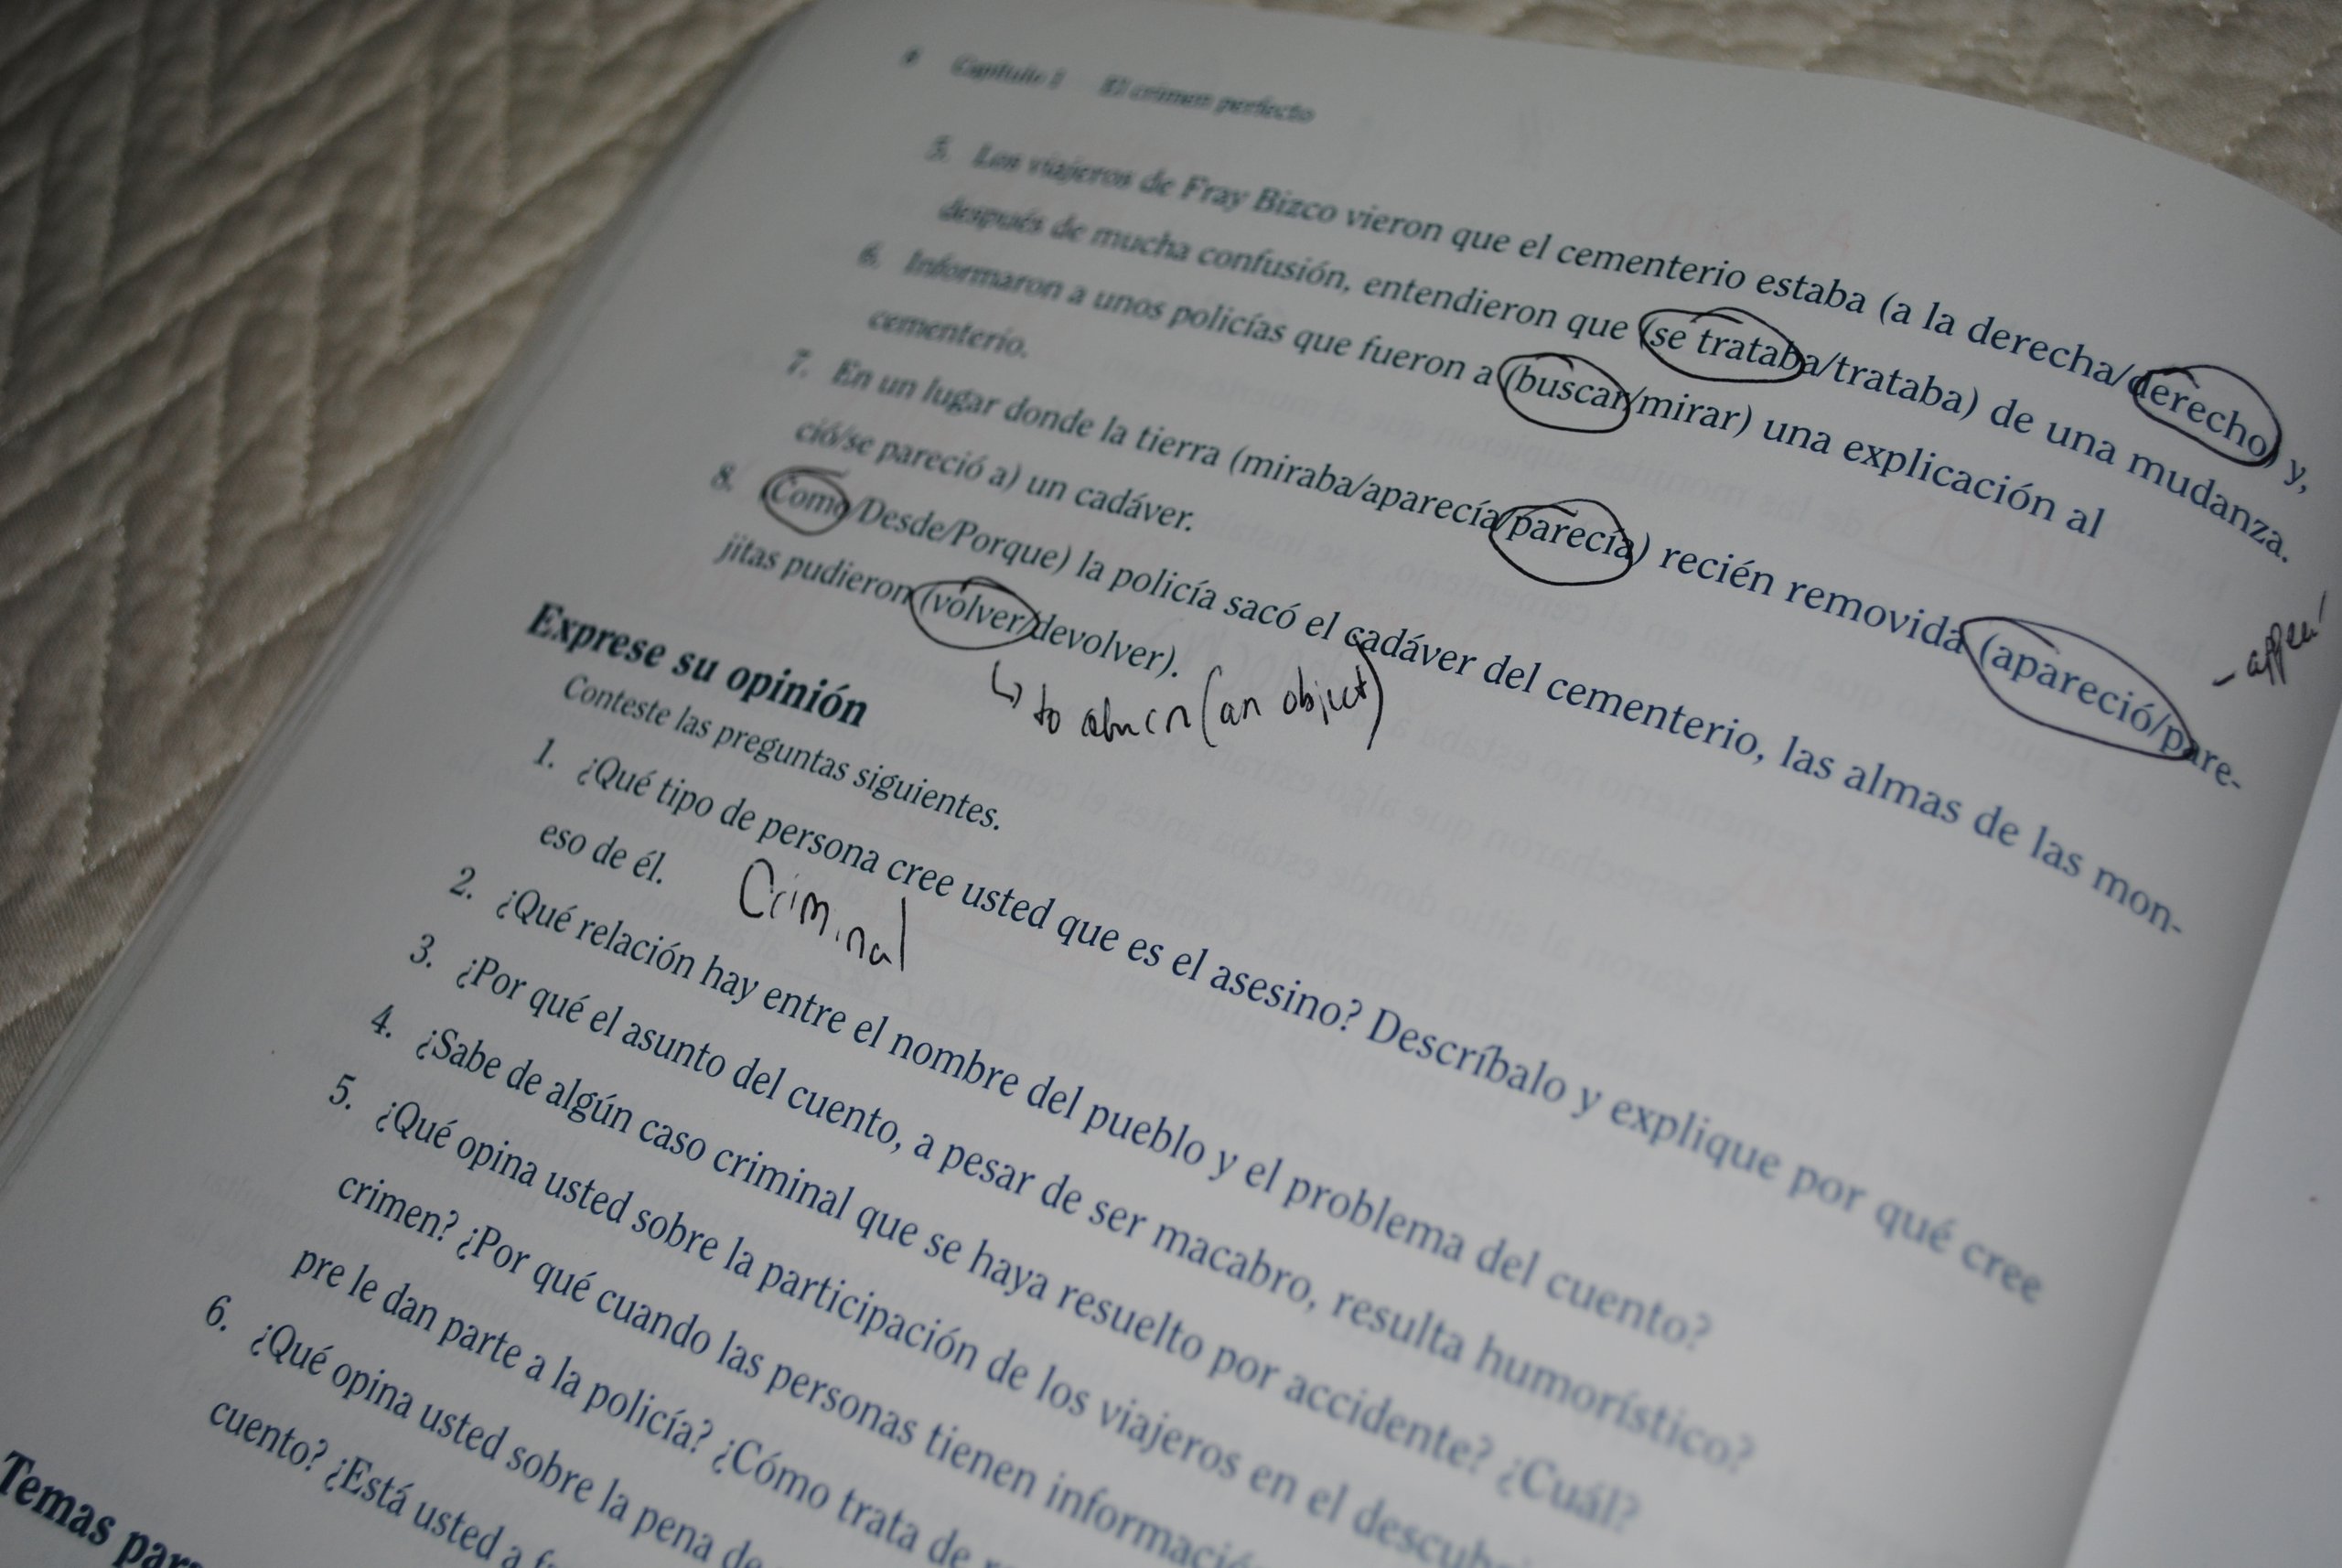 8 Capítulo 1 El crimen perfecto
5. Los viajeros de Fray Bizco vieron que el cementerio estaba (a la derecha/derecho) y,
después de mucha confusión, entendieron que (se trataba/trataba) de una mudanza.
6. Informaron a unos policías que fueron a (buscar/mirar) una explicación al
cementerio.
7. En un lugar donde la tierra (miraba/aparecía/parecía) recién removida (apareció/pare-
ció/se pareció a) un cadáver.
8. (Como/Desde/Porque) la policía sacó el cadáver del cementerio, las almas de las mon-
jitas pudieron (volver/devolver).
↳ to (an object)
Exprese su opinión
Conteste las preguntas siguientes.
1. ¿Qué tipo de persona cree usted que es el asesino? Descríbalo y explique por qué cree
eso de él. Criminal
2. ¿Qué relación hay entre el nombre del pueblo y el problema del cuento?
3. ¿Por qué el asunto del cuento, a pesar de ser macabro, resulta humorístico?
4. ¿Sabe de algún caso criminal que se haya resuelto por accidente? ¿Cuál?
5. ¿Qué opina usted sobre la participación de los viajeros en el descubri
crimen? ¿Por qué cuando las personas tienen informació
pre le dan parte a la policía? ¿Cómo trata de
6. ¿Qué opina usted sobre la pena de
cuento? ¿Está usted a
Temas para